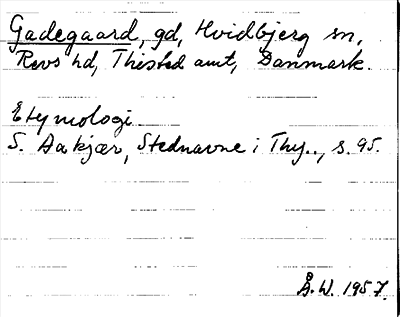 Gadegaard, gd, Hvidbjerg sn,
Revs hd, Thisted amt, Danmark.
Etymologi
S. Aakjær, Stednavne i Thy.., s. 95.
Å. W. 1957.